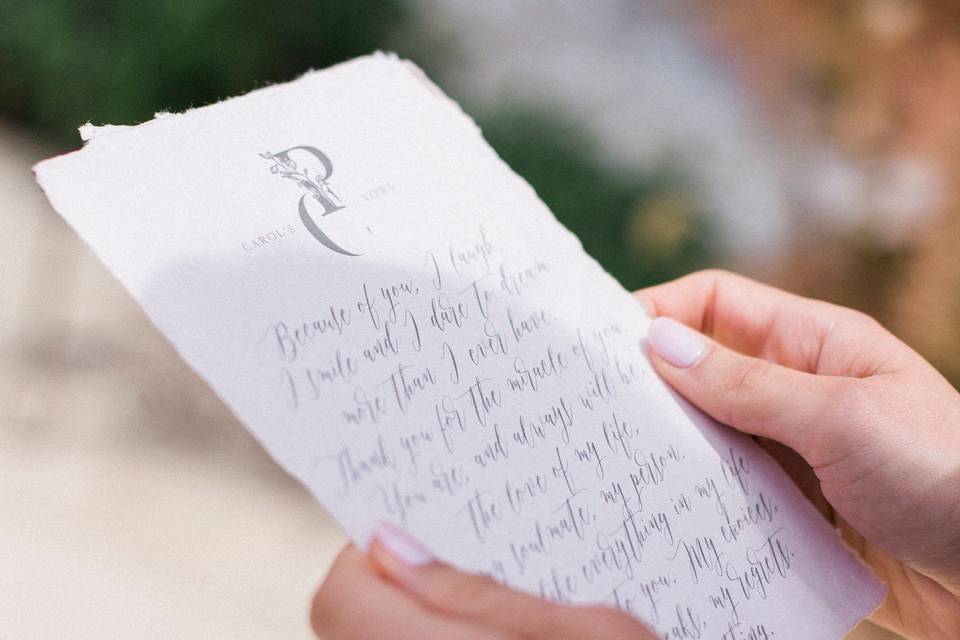 P
C
CAROL'S VOWS
Because of you, I laugh,
I smile and I dare to dream
more than I ever have.
Thank you for the miracle of you.
You are, and always will be,
The love of my life,
my soulmate, my person.
like everything in my life
to you. My choices,
my regrets.